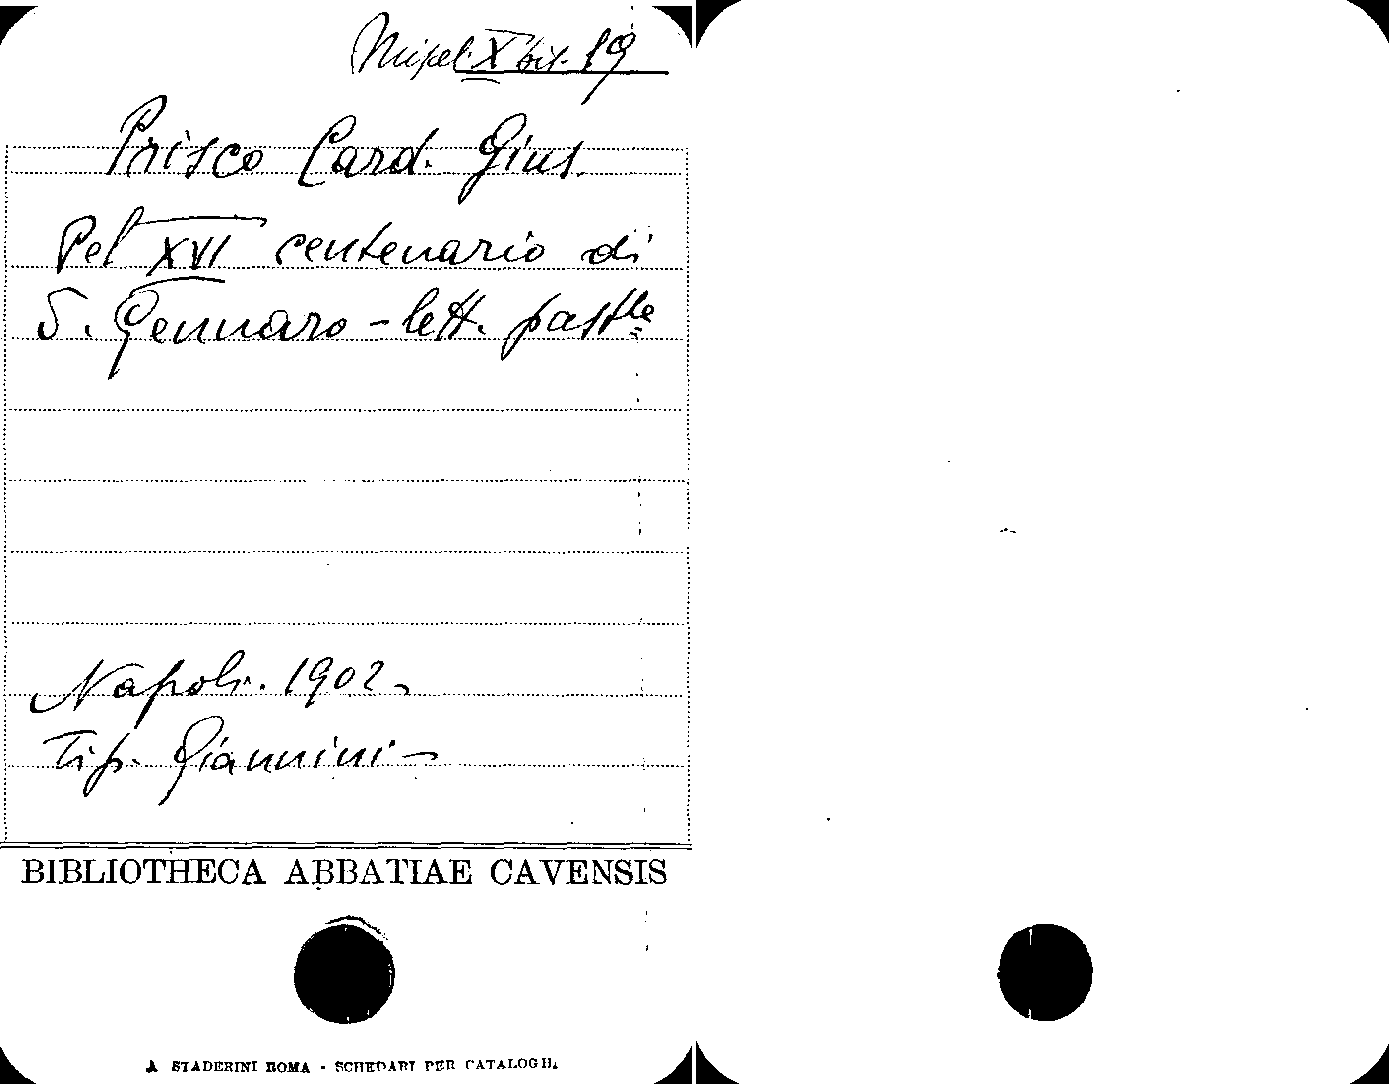 Miscel. X bis. 19
Prisco Card. Gius.
Pel XVI centenario di
S. Gennaro - lett. pastle
Napoli. 1902-
Tip. Giannini-
BIBLIOTHECA ABBATIAE CAVENSIS
STADERINI ROMA - SCHEDARI PER CATALOGHI